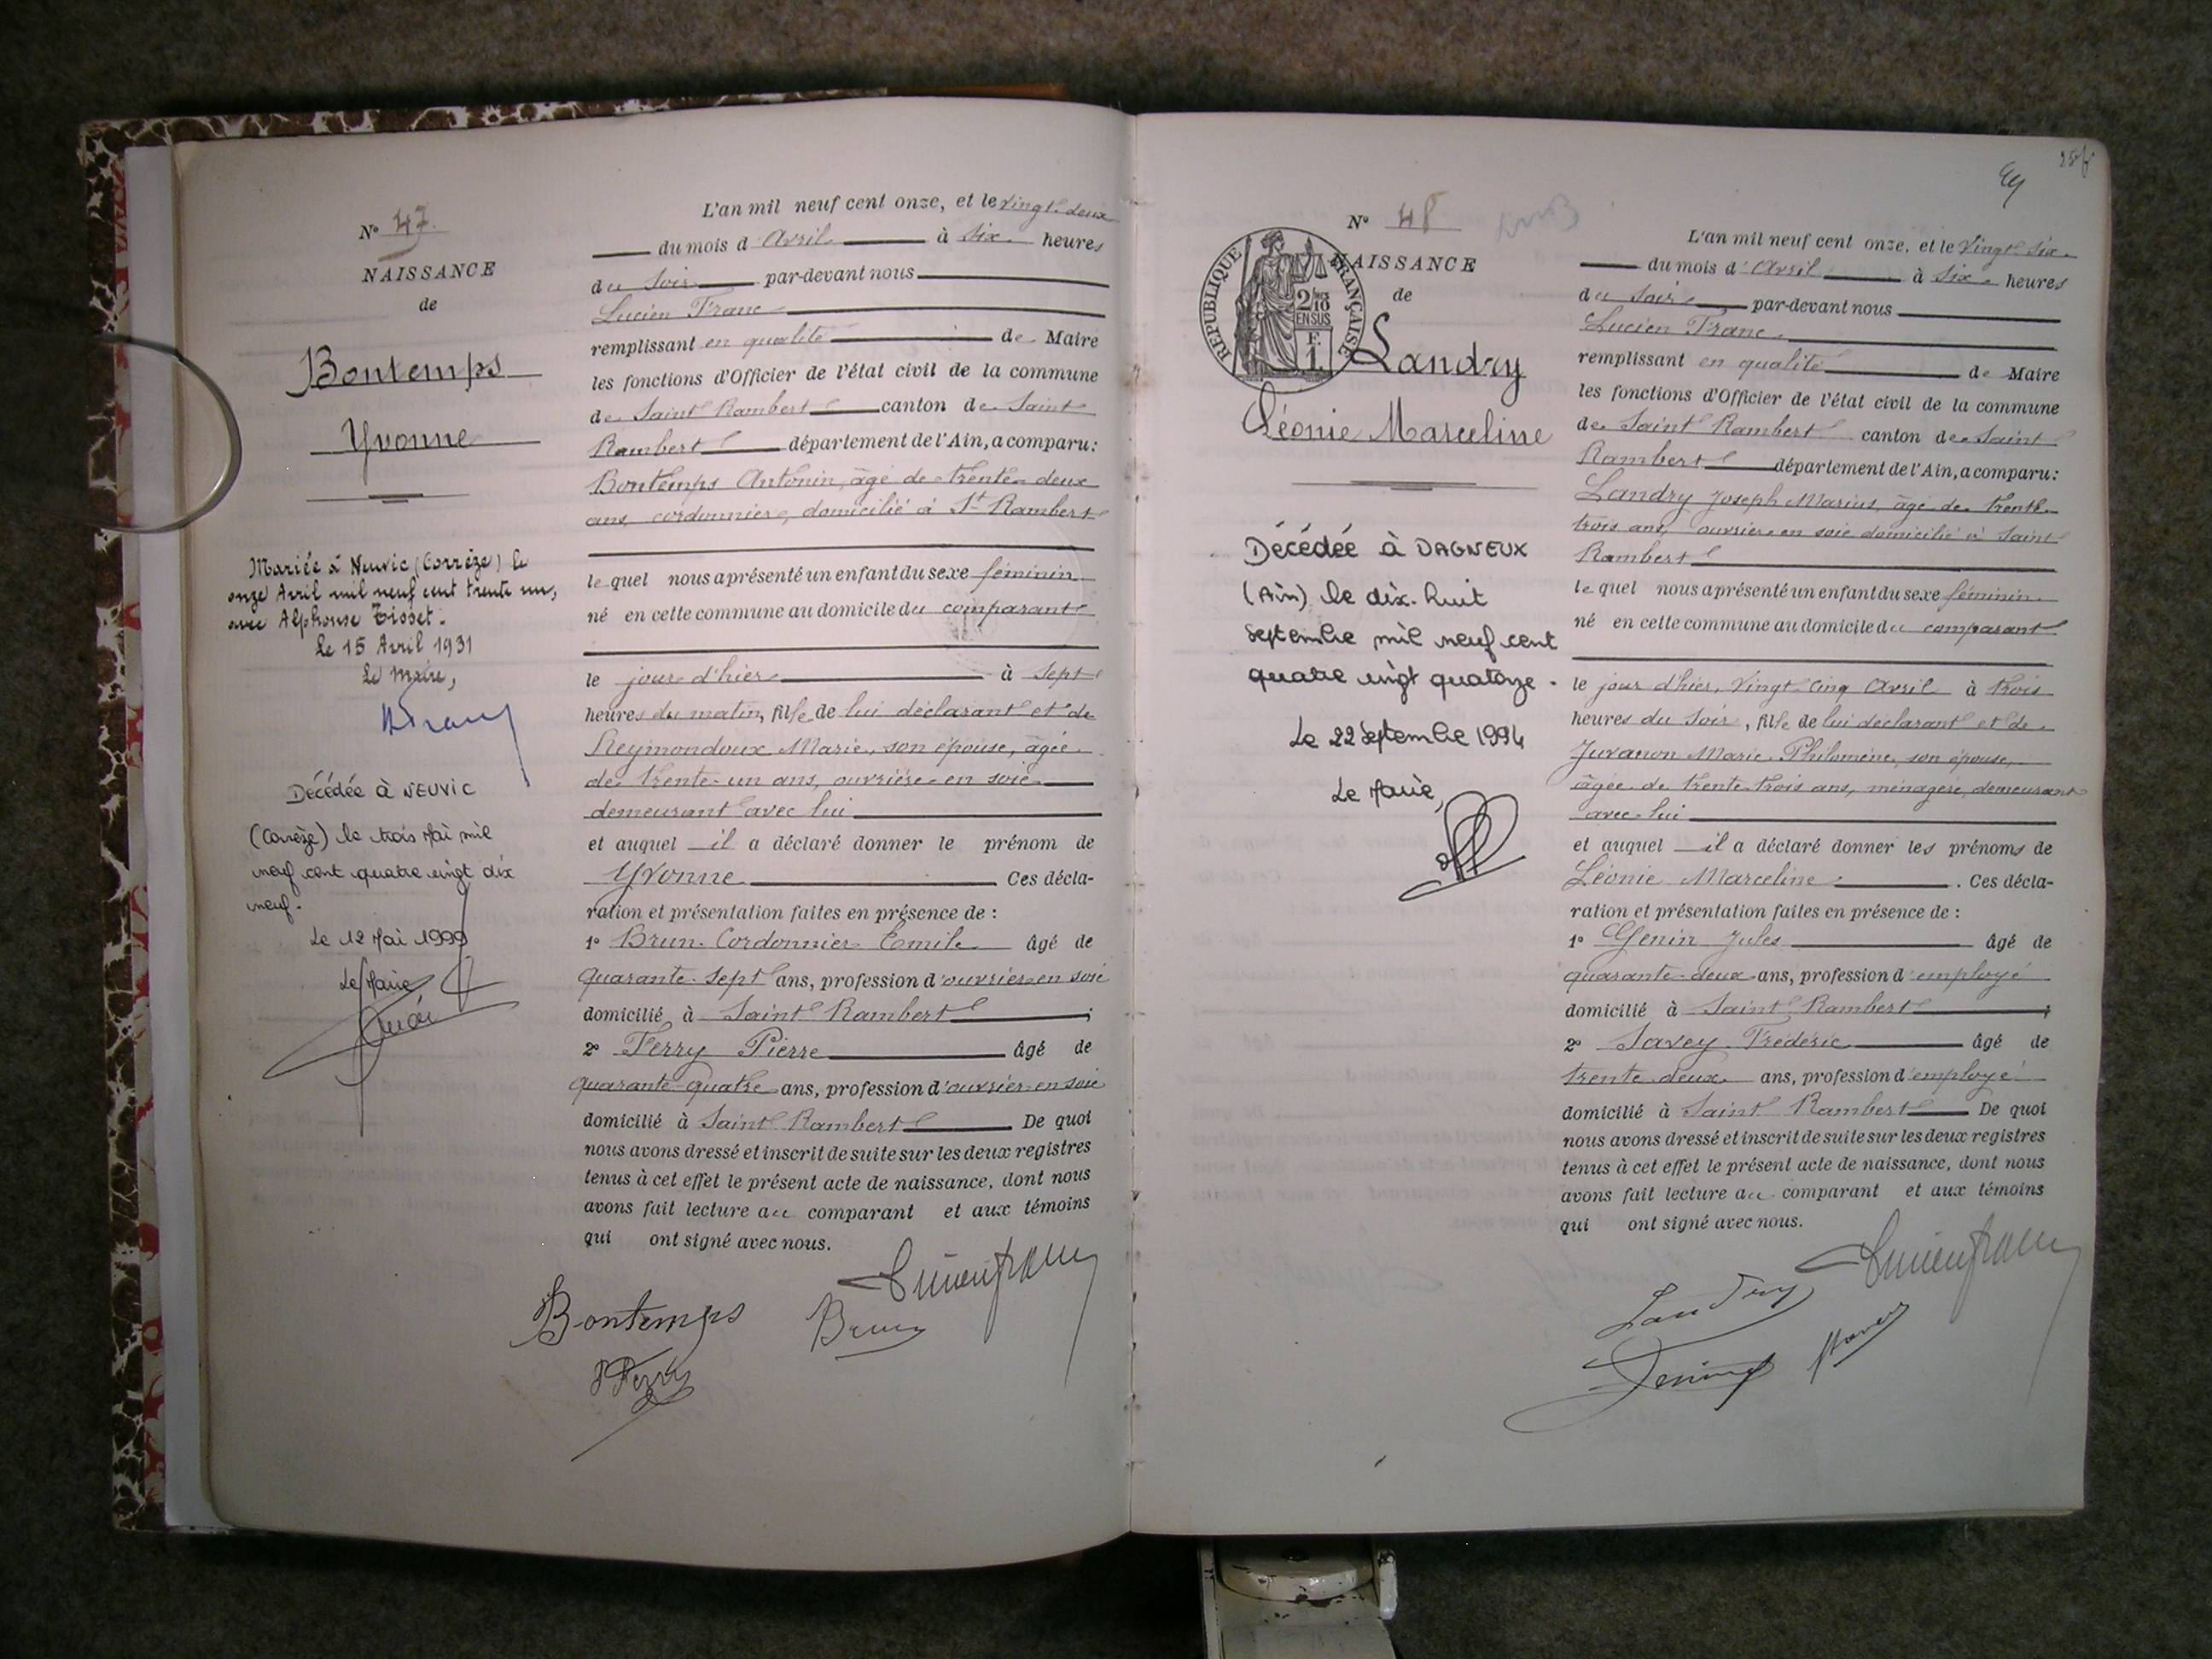 Nº 47.
NAISSANCE
de
Bontemps
Yvonne
Mariée à Neuvic (Corrèze) le
onze Avril mil neuf cent trente un,
avec Alphonse Tisset.
Le 15 Avril 1931
Le Maire,
Décédée à NEUVIC
(Corrèze) le trois Mai mil
neuf cent quatre vingt dix
neuf.
Le 12 Mai 1999
Le Maire
L'an mil neuf cent onze, et le vingt-deux
du mois d'Avril à six heures
du soir par-devant nous
Lucien Franc
remplissant en qualité de Maire
les fonctions d'Officier de l'état civil de la commune
de Saint Rambert canton de Saint
Rambert département de l'Ain, a comparu:
Bontemps Antonin, âgé de trente-deux
ans, cordonnier, domicilié à St Rambert
lequel nous a présenté un enfant du sexe féminin
né en cette commune au domicile du comparant
le jour d'hier à sept
heures du matin, fille de lui déclarant et de
Reymondoux Marie, son épouse, âgée
de trente-un ans, ouvrière en soie
demeurant avec lui
et auquel il a déclaré donner le prénom de
Yvonne Ces décla-
ration et présentation faites en présence de :
1º Brun-Cordonnier Emile âgé de
quarante-sept ans, profession d'ouvrier en soie
domicilié à Saint Rambert ;
2º Ferry Pierre âgé de
quarante-quatre ans, profession d'ouvrier en soie
domicilié à Saint Rambert De quoi
nous avons dressé et inscrit de suite sur les deux registres
tenus à cet effet le présent acte de naissance, dont nous
avons fait lecture au comparant et aux témoins
qui ont signé avec nous.
Lucien Franc
Bontemps Brun
P Ferry
Nº 48
RÉPUBLIQUE FRANÇAISE
2/10
EN SUS
F.
1.
NAISSANCE
de
Landry
Léonie Marceline
Décédée à DAGNEUX
(Ain) le dix-huit
septembre mil neuf cent
quatre vingt quatorze.
Le 22 septembre 1994
Le Maire,
L'an mil neuf cent onze, et le vingt-six
du mois d'Avril à six heures
du soir par-devant nous
Lucien Franc
remplissant en qualité de Maire
les fonctions d'Officier de l'état civil de la commune
de Saint Rambert canton de Saint
Rambert département de l'Ain, a comparu:
Landry Joseph Marius, âgé de trente-
trois ans, ouvrier en soie domicilié à Saint
Rambert
lequel nous a présenté un enfant du sexe féminin
né en cette commune au domicile du comparant
le jour d'hier, vingt-cinq Avril à trois
heures du soir, fille de lui déclarant et de
Juvanon Marie-Philomène, son épouse,
âgée de trente-trois ans, ménagère, demeurant
avec lui
et auquel il a déclaré donner les prénoms de
Léonie Marceline . Ces décla-
ration et présentation faites en présence de :
1º Genin Jules âgé de
quarante-deux ans, profession d'employé
domicilié à Saint Rambert ;
2º Savey Frédéric âgé de
trente-deux ans, profession d'employé
domicilié à Saint Rambert De quoi
nous avons dressé et inscrit de suite sur les deux registres
tenus à cet effet le présent acte de naissance, dont nous
avons fait lecture au comparant et aux témoins
qui ont signé avec nous.
Lucien Franc
Landry
Genin Savey